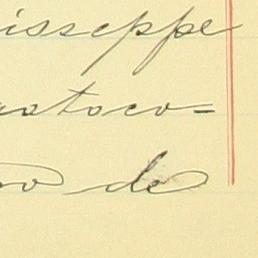 isseppe
astoco=
o de